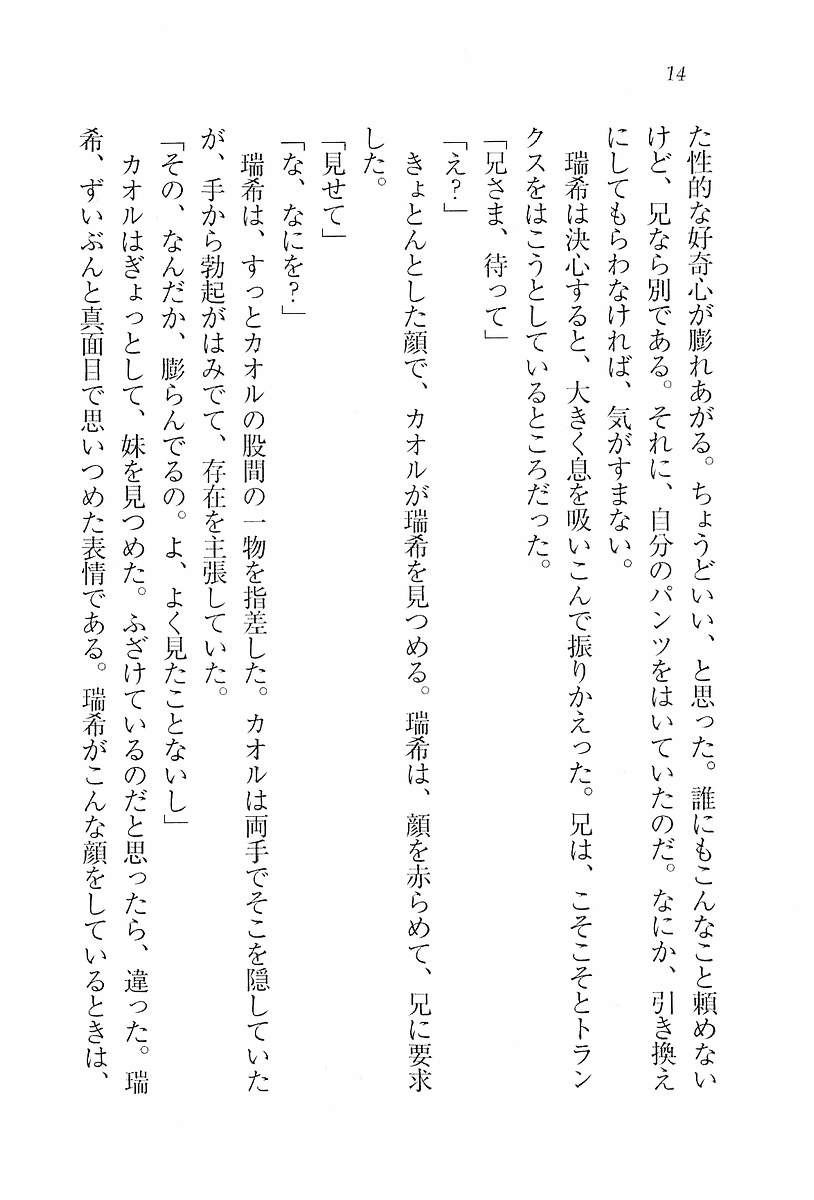 14
た性的な好奇心が膨れあがる。ちょうどいい、と思った。誰にもこんなこと頼めない
けど、兄なら別である。それに、自分のパンツをはいていたのだ。なにか、引き換え
にしてもらわなければ、気がすまない。
瑞希は決心すると、大きく息を吸いこんで振りかえった。兄は、こそこそとトラン
クスをはこうとしているところだった。
「兄さま、待って」
「え？」
きょとんとした顔で、カオルが瑞希を見つめる。瑞希は、顔を赤らめて、兄に要求
した。
「見せて」
「な、なにを？」
瑞希は、すっとカオルの股間の一物を指差した。カオルは両手でそこを隠していた
が、手から勃起がはみでて、存在を主張していた。
「その、なんだか、膨らんでるの。よ、よく見たことないし」
カオルはぎょっとして、妹を見つめた。ふざけているのだと思ったら、違った。瑞
希、ずいぶんと真面目で思いつめた表情である。瑞希がこんな顔をしているときは、